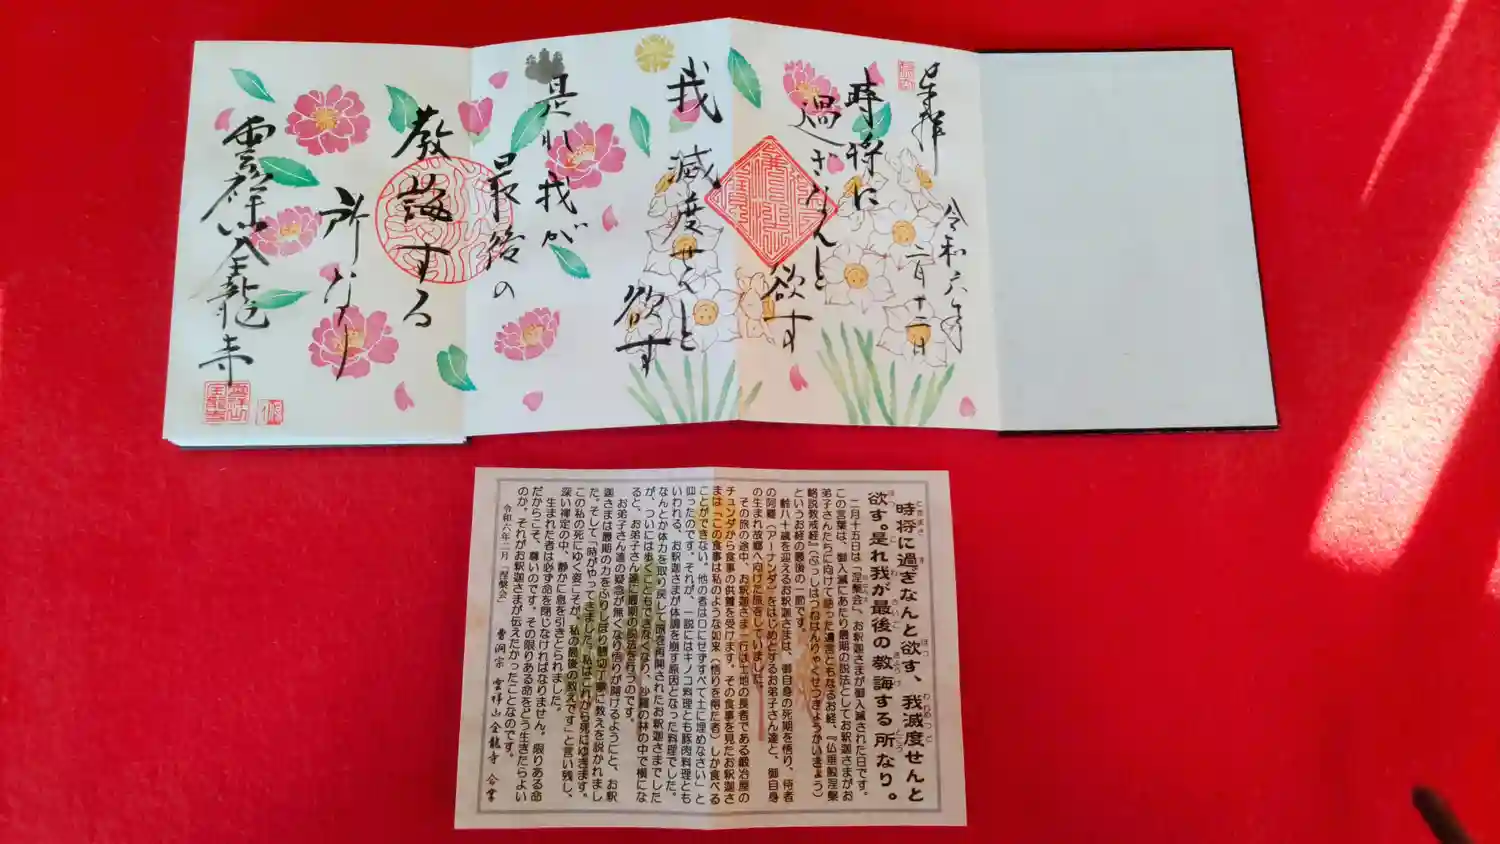 奉拝
令和六年
二月十二日
時將に
過ぎなんと
欲す
我
滅度せんと
欲す
是れ我が
最後の
教誨する
所なり
雲祥山全龍寺
時将に過ぎなんと欲す、我滅度せんと
欲す。是れ我が最後の教誨する所なり。
二月十五日は「涅槃会」、お釈迦さまが御入滅された日です。
この言葉は、御入滅にあたり最期の説法としてお釈迦さまがお
弟子さんたちに向けて語った遺言ともなるお経、『仏垂般涅槃
略説教誡経』(ぶっしはつねはんりゃくせつきょうかいきょう)
というお経の最後の一節です。
齢八十歳を迎えるお釈迦さまは、御自身の死期を悟り、侍者
の阿難(アーナンダ)をはじめとするお弟子さん達と、御自身
の生まれ故郷へ向けた旅をしていました。
その旅の途中、お釈迦さま一行は土地の長者である鍛冶屋の
チュンダから食事の供養を受けます。その食事を見たお釈迦さ
まは「この食事は私のような如来(悟りを得た者)しか食べる
ことができない。他の者は口にせずすべて土に埋めなさい」と
仰ったのです。それが、一説にはキノコ料理とも豚肉料理とも
いわれる、お釈迦さまが体調を崩す原因となった料理でした。
なんとか体力を取り戻して旅を再開されたお釈迦さまでした
が、ついには歩くこともできなくなり、沙羅の林の中で横にな
ると、お弟子さん達に最期の説法を行うのです。
お弟子さん達の疑念が無くなり悟りが開けるようにと、お釈
迦さまは最期の力をふりしぼり懇切丁寧に教えを説かれまし
た。そして「時がやってきました。私はこれから死にゆきます。
この私の死にゆく姿こそが、私の最後の教えです」と言い残し、
深い禅定の中、静かに息を引きとられました。
生まれた者は必ず命を閉じなければなりません。限りある命
だからこそ、尊いのです。その限りある命をどう生きたらよい
のか。それがお釈迦さまが伝えたかったことなのです。
令和六年二月「涅槃会」
曹洞宗 雲祥山全龍寺 合掌